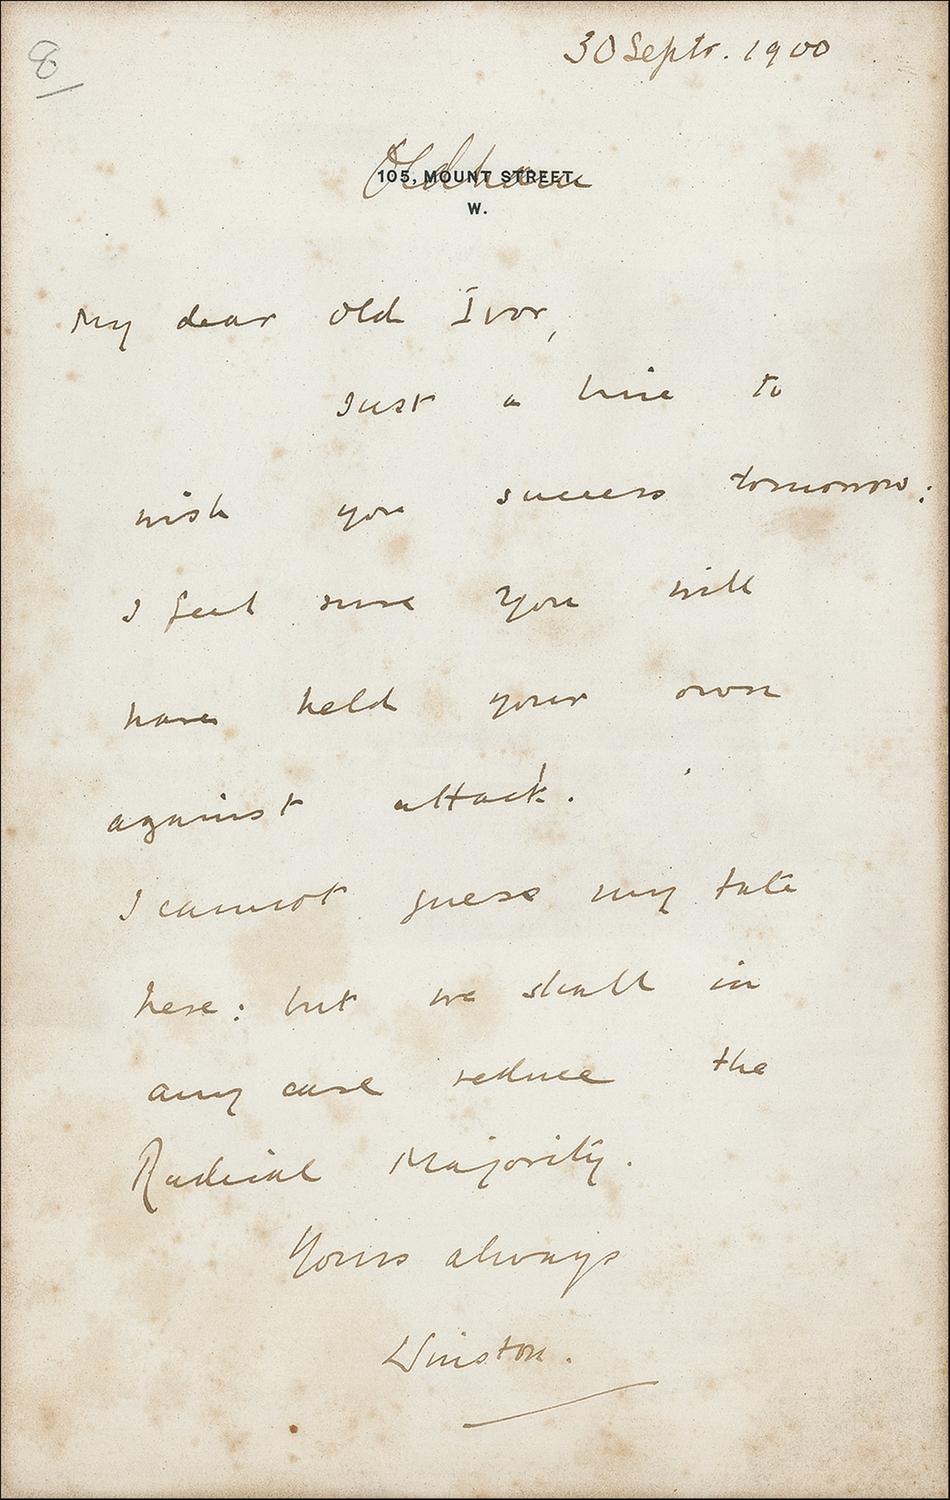 8
30 Septr. 1900
Oldham
105, MOUNT STREET.
W.
My dear old Ivor,
Just a line to
wish you success tomorrow:
I feel sure you will
have held your own
against attack.
I cannot guess my fate
here: but we shall in
any case reduce the
Radical Majority.
Yours always
Winston.